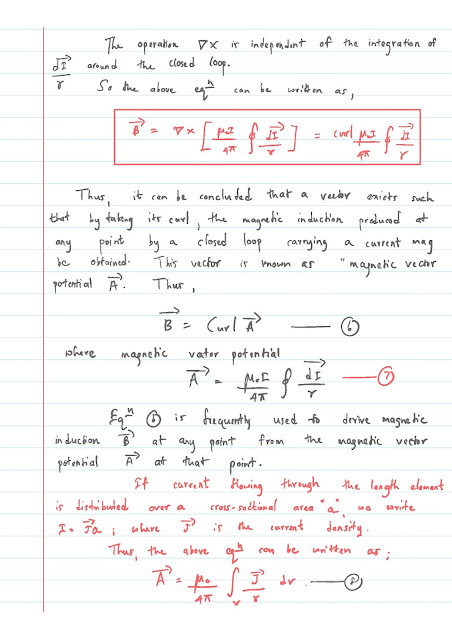 The operation ∇x is independent of the integration of
dI/r around the closed loop.
So the above eqⁿ can be written as,
B = ∇x [ μ₀I/4π ∮ dI/r ] = curl μ₀I/4π ∮ dI/r
Thus, it can be concluded that a vector exists such
that by taking its curl, the magnetic induction produced at
any point by a closed loop carrying a current may
be obtained. This vector is known as "magnetic vector
potential A. Thus,
B = Curl A —— ⑥
where magnetic vector potential
A = μ₀I/4π ∮ dI/r —— ⑦
Eqⁿ ⑥ is frequently used to derive magnetic
induction B at any point from the magnetic vector
potential A at that point.
If current flowing through the length element
is distributed over a cross-sectional area "a", we write
I = Ja ; where J is the current density.
Thus, the above eqⁿ can be written as;
A = μ₀/4π ∫v J/r dv. —— ⑧